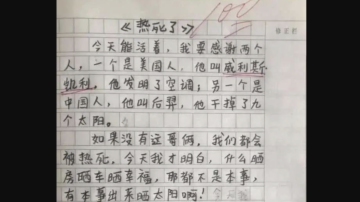 《热死了》
100
今天能活着，我要感谢两个
人，一个是美国人，他叫威利斯
凯利。他发明了空调；另一个是
中国人，他叫后羿，他干掉了九
个太阳。
如果没有这哥俩，我们都会
被热死。今天我才明白，什么晒
房晒车晒幸福，那都不是本事，
有本事出来晒太阳啊！